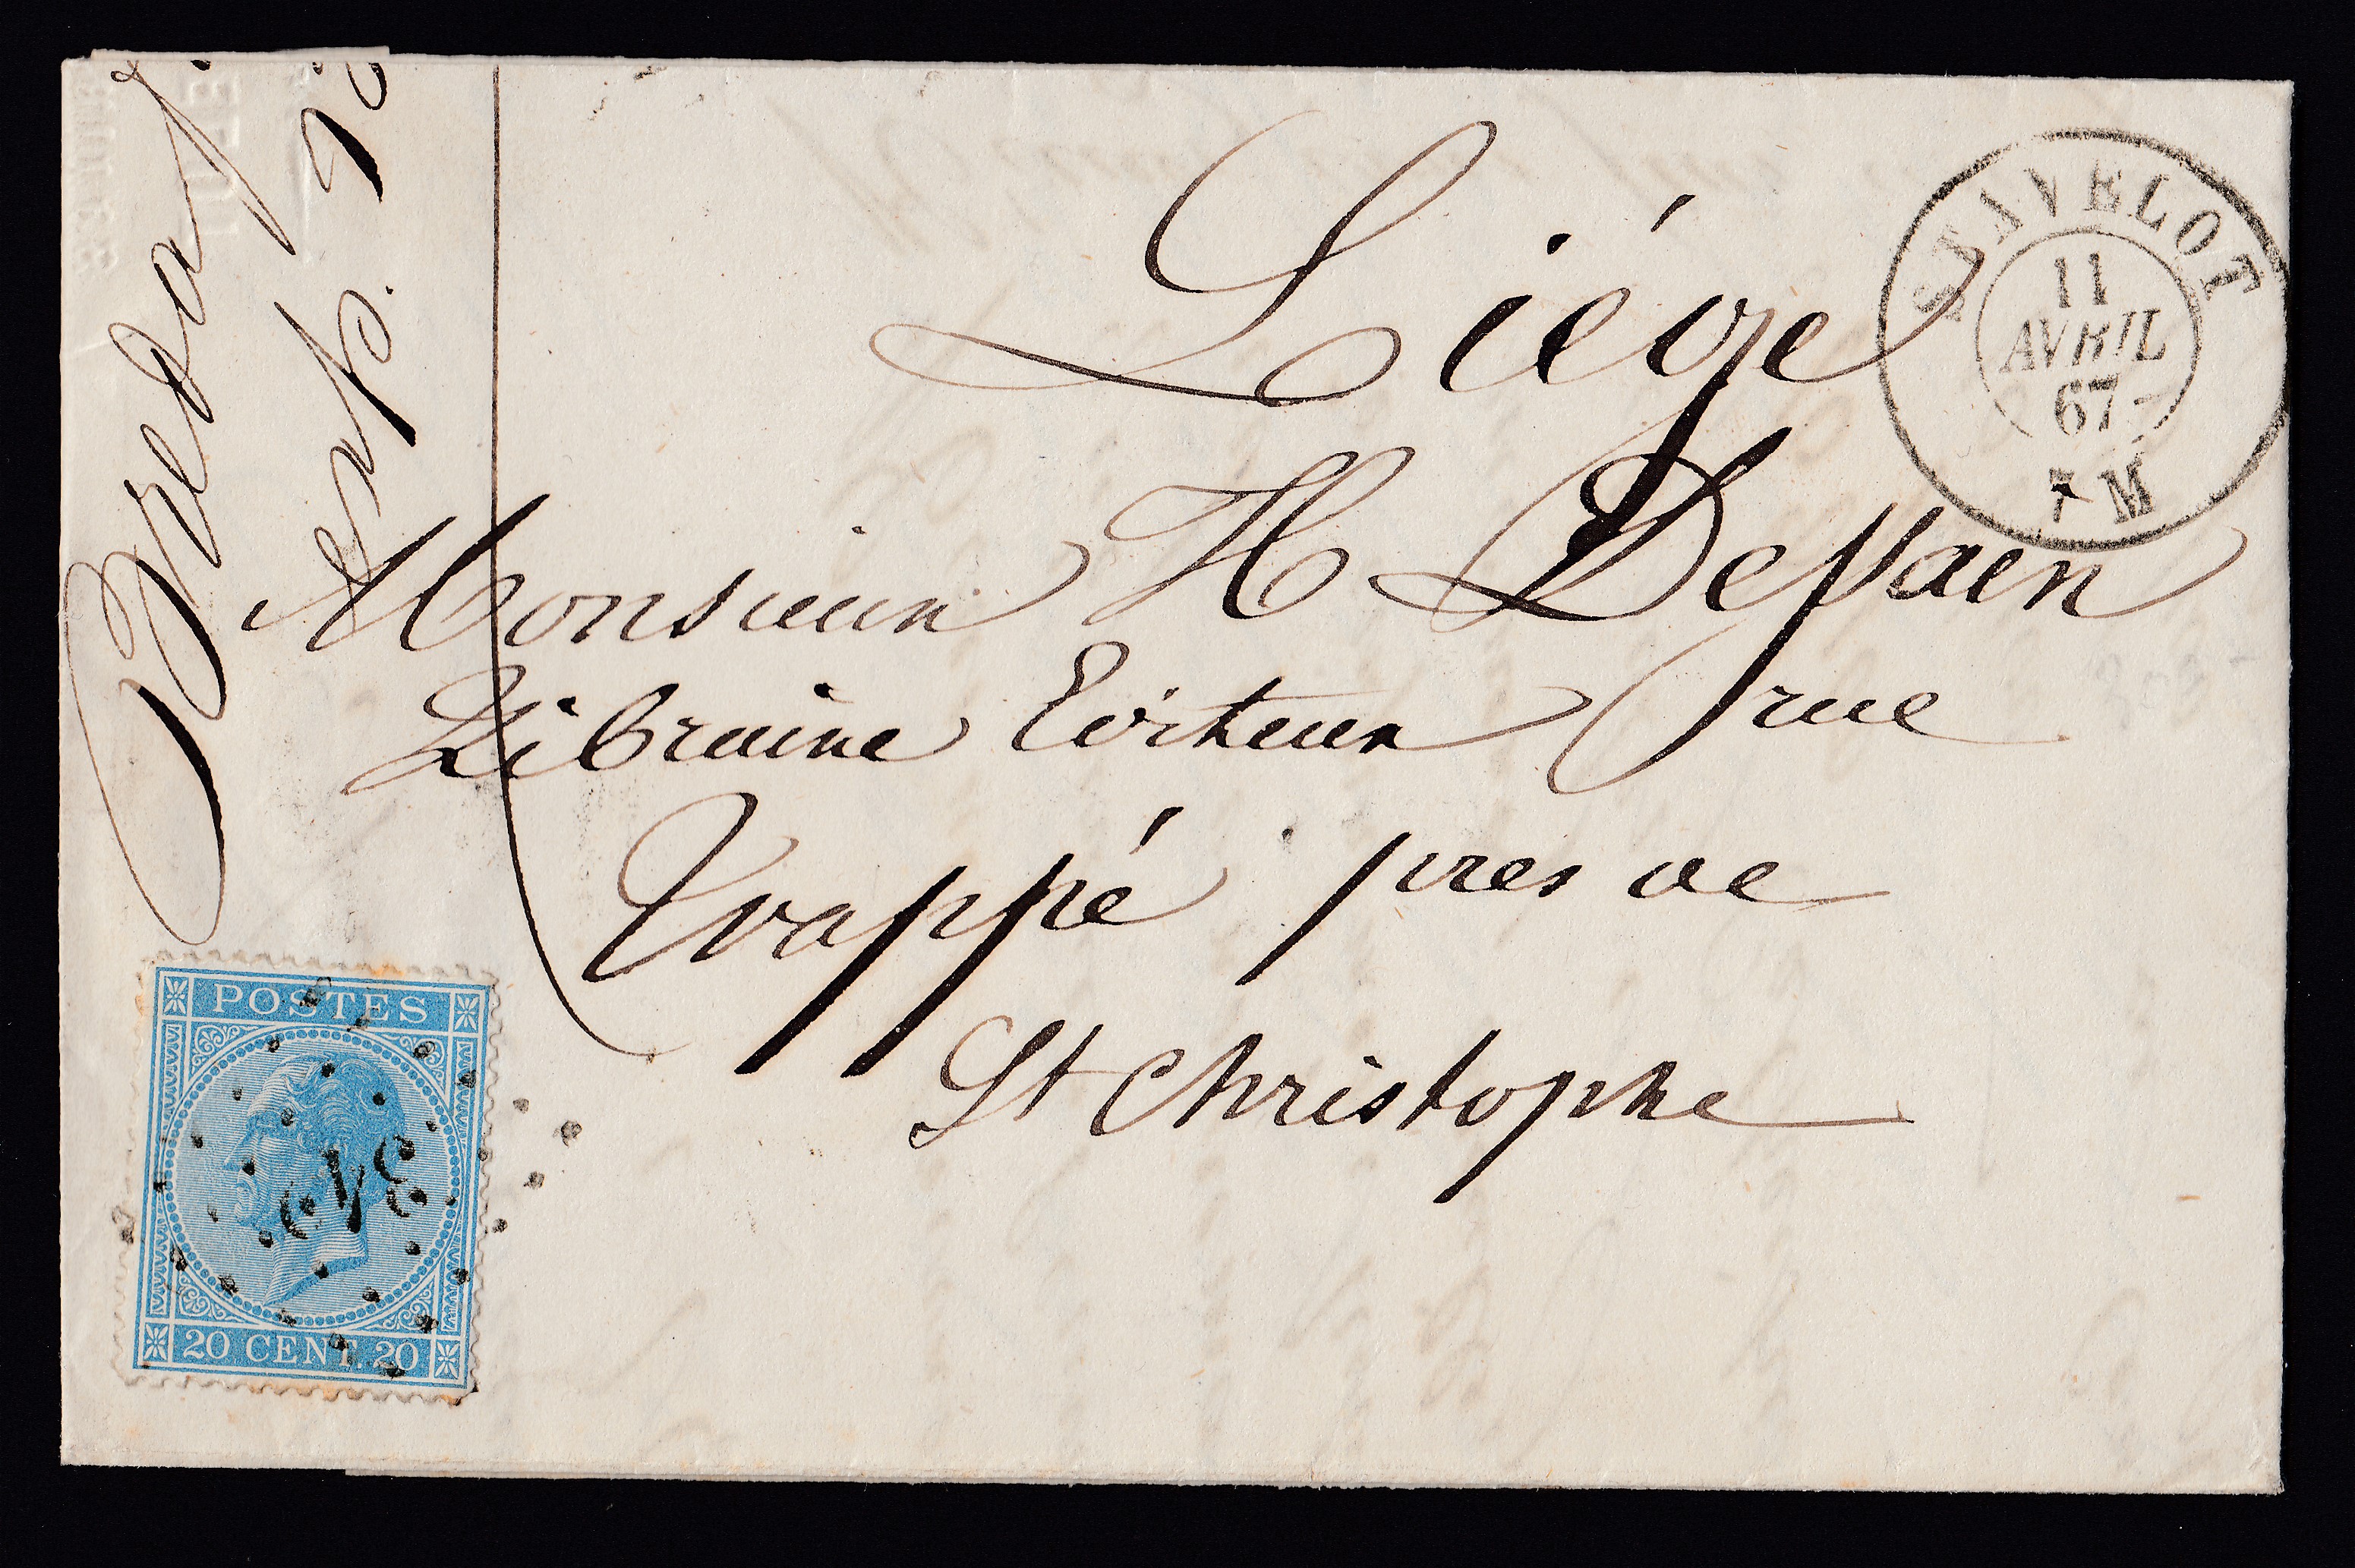 Liége
Monsieur H Dessain
Libraire Editeur rue
Trappé pres de
St Christophe
STAVELOT
11
AVRIL
67
7 M
POSTES
20 CENT. 20